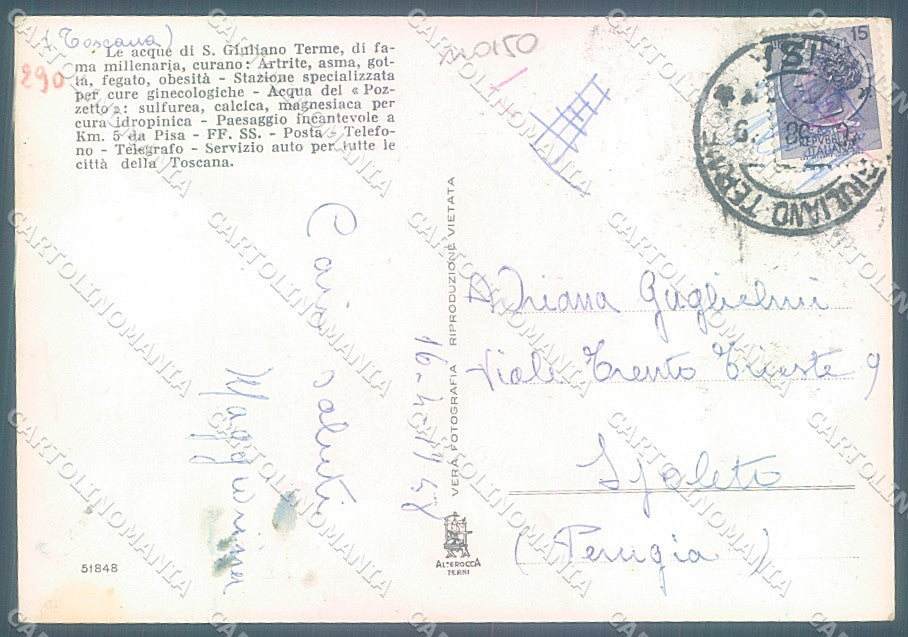 (Toscana)
Le acque di S. Giuliano Terme, di fa-
ma millenaria, curano: Artrite, asma, got-
ta, fegato, obesità - Stazione specializzata
per cure ginecologiche - Acqua del «Poz-
zetto»: sulfurea, calcica, magnesiaca per
cura idropinica - Paesaggio incantevole a
Km. 5 da Pisa - FF. SS. - Posta - Telefo-
no - Telegrafo - Servizio auto per tutte le
città della Toscana.
290
Cari saluti
16-4-1958
51848
VERA FOTOGRAFIA RIPRODUZIONE VIETATA
ALTEROCCA
TERNI
15
REPVBBLICA
ITALIANA
GIULIANO TERME
Adriana Guglielmi
Viale Trento Trieste 9
Spoleto
(Perugia)
CARTOLINOMANIA